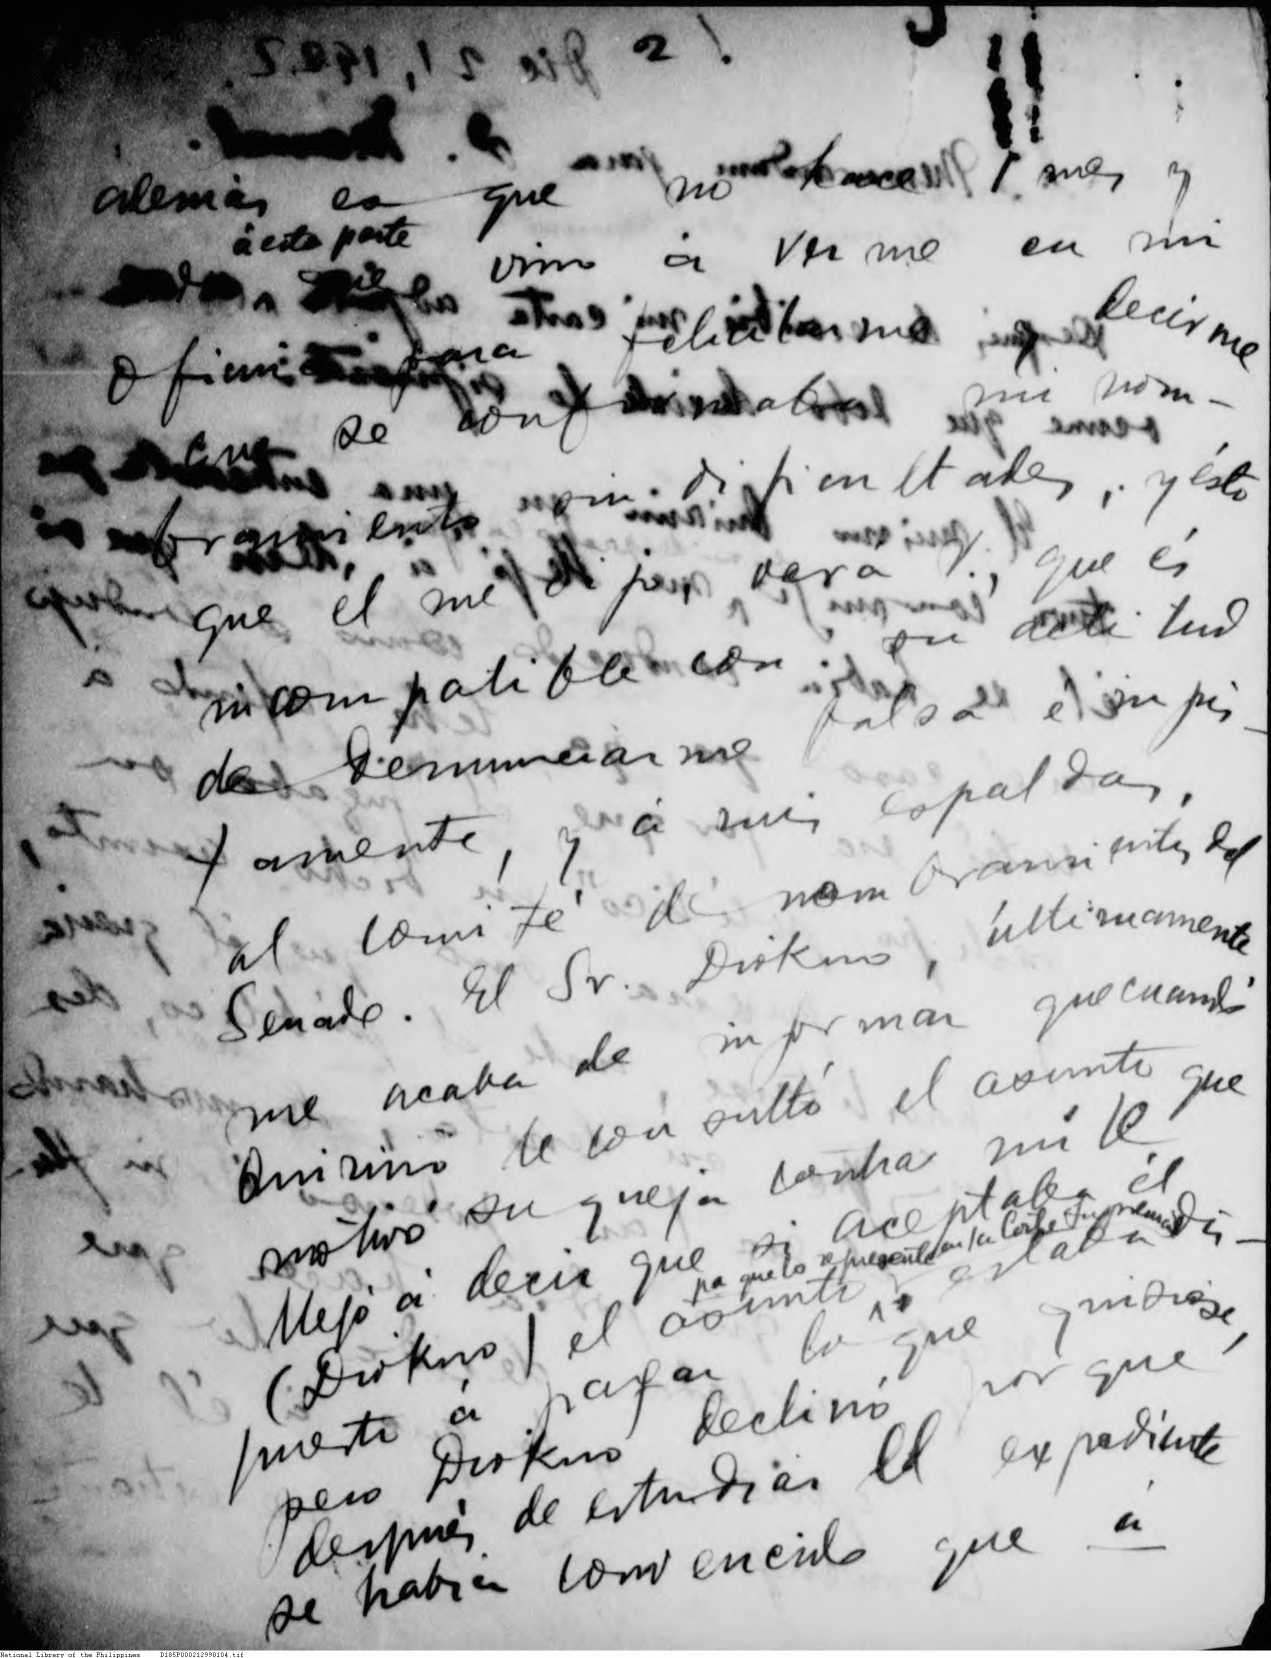 2
además es que no hace 1 mes y
á esta parte
vino á verme en mi
oficina para felicitarme y decirme
que se confirmaba mi nom-
bramiento sin dificultades, y ésto
que el me dijo, verá V., que és
incompatible con su actitud
de denunciarme falsa é injus-
tamente, y á mis espaldas,
al Comité de nombramientos del
Senado. El Sr. Diokno, últimamente
me acaba de informar que cuando
Quirino le consultó el asunto que
motivó su queja contra mí le
llegó á decir que si aceptaba él
pa que lo represente en la Corte Suprema
(Diokno) el asunto estaba dis-
puesto á pagar lo que quisiese,
pero Diokno declinó porque
después de estudiar el expediente
se había convencido que á
National Library of the Philippines D185P000212998104.tif